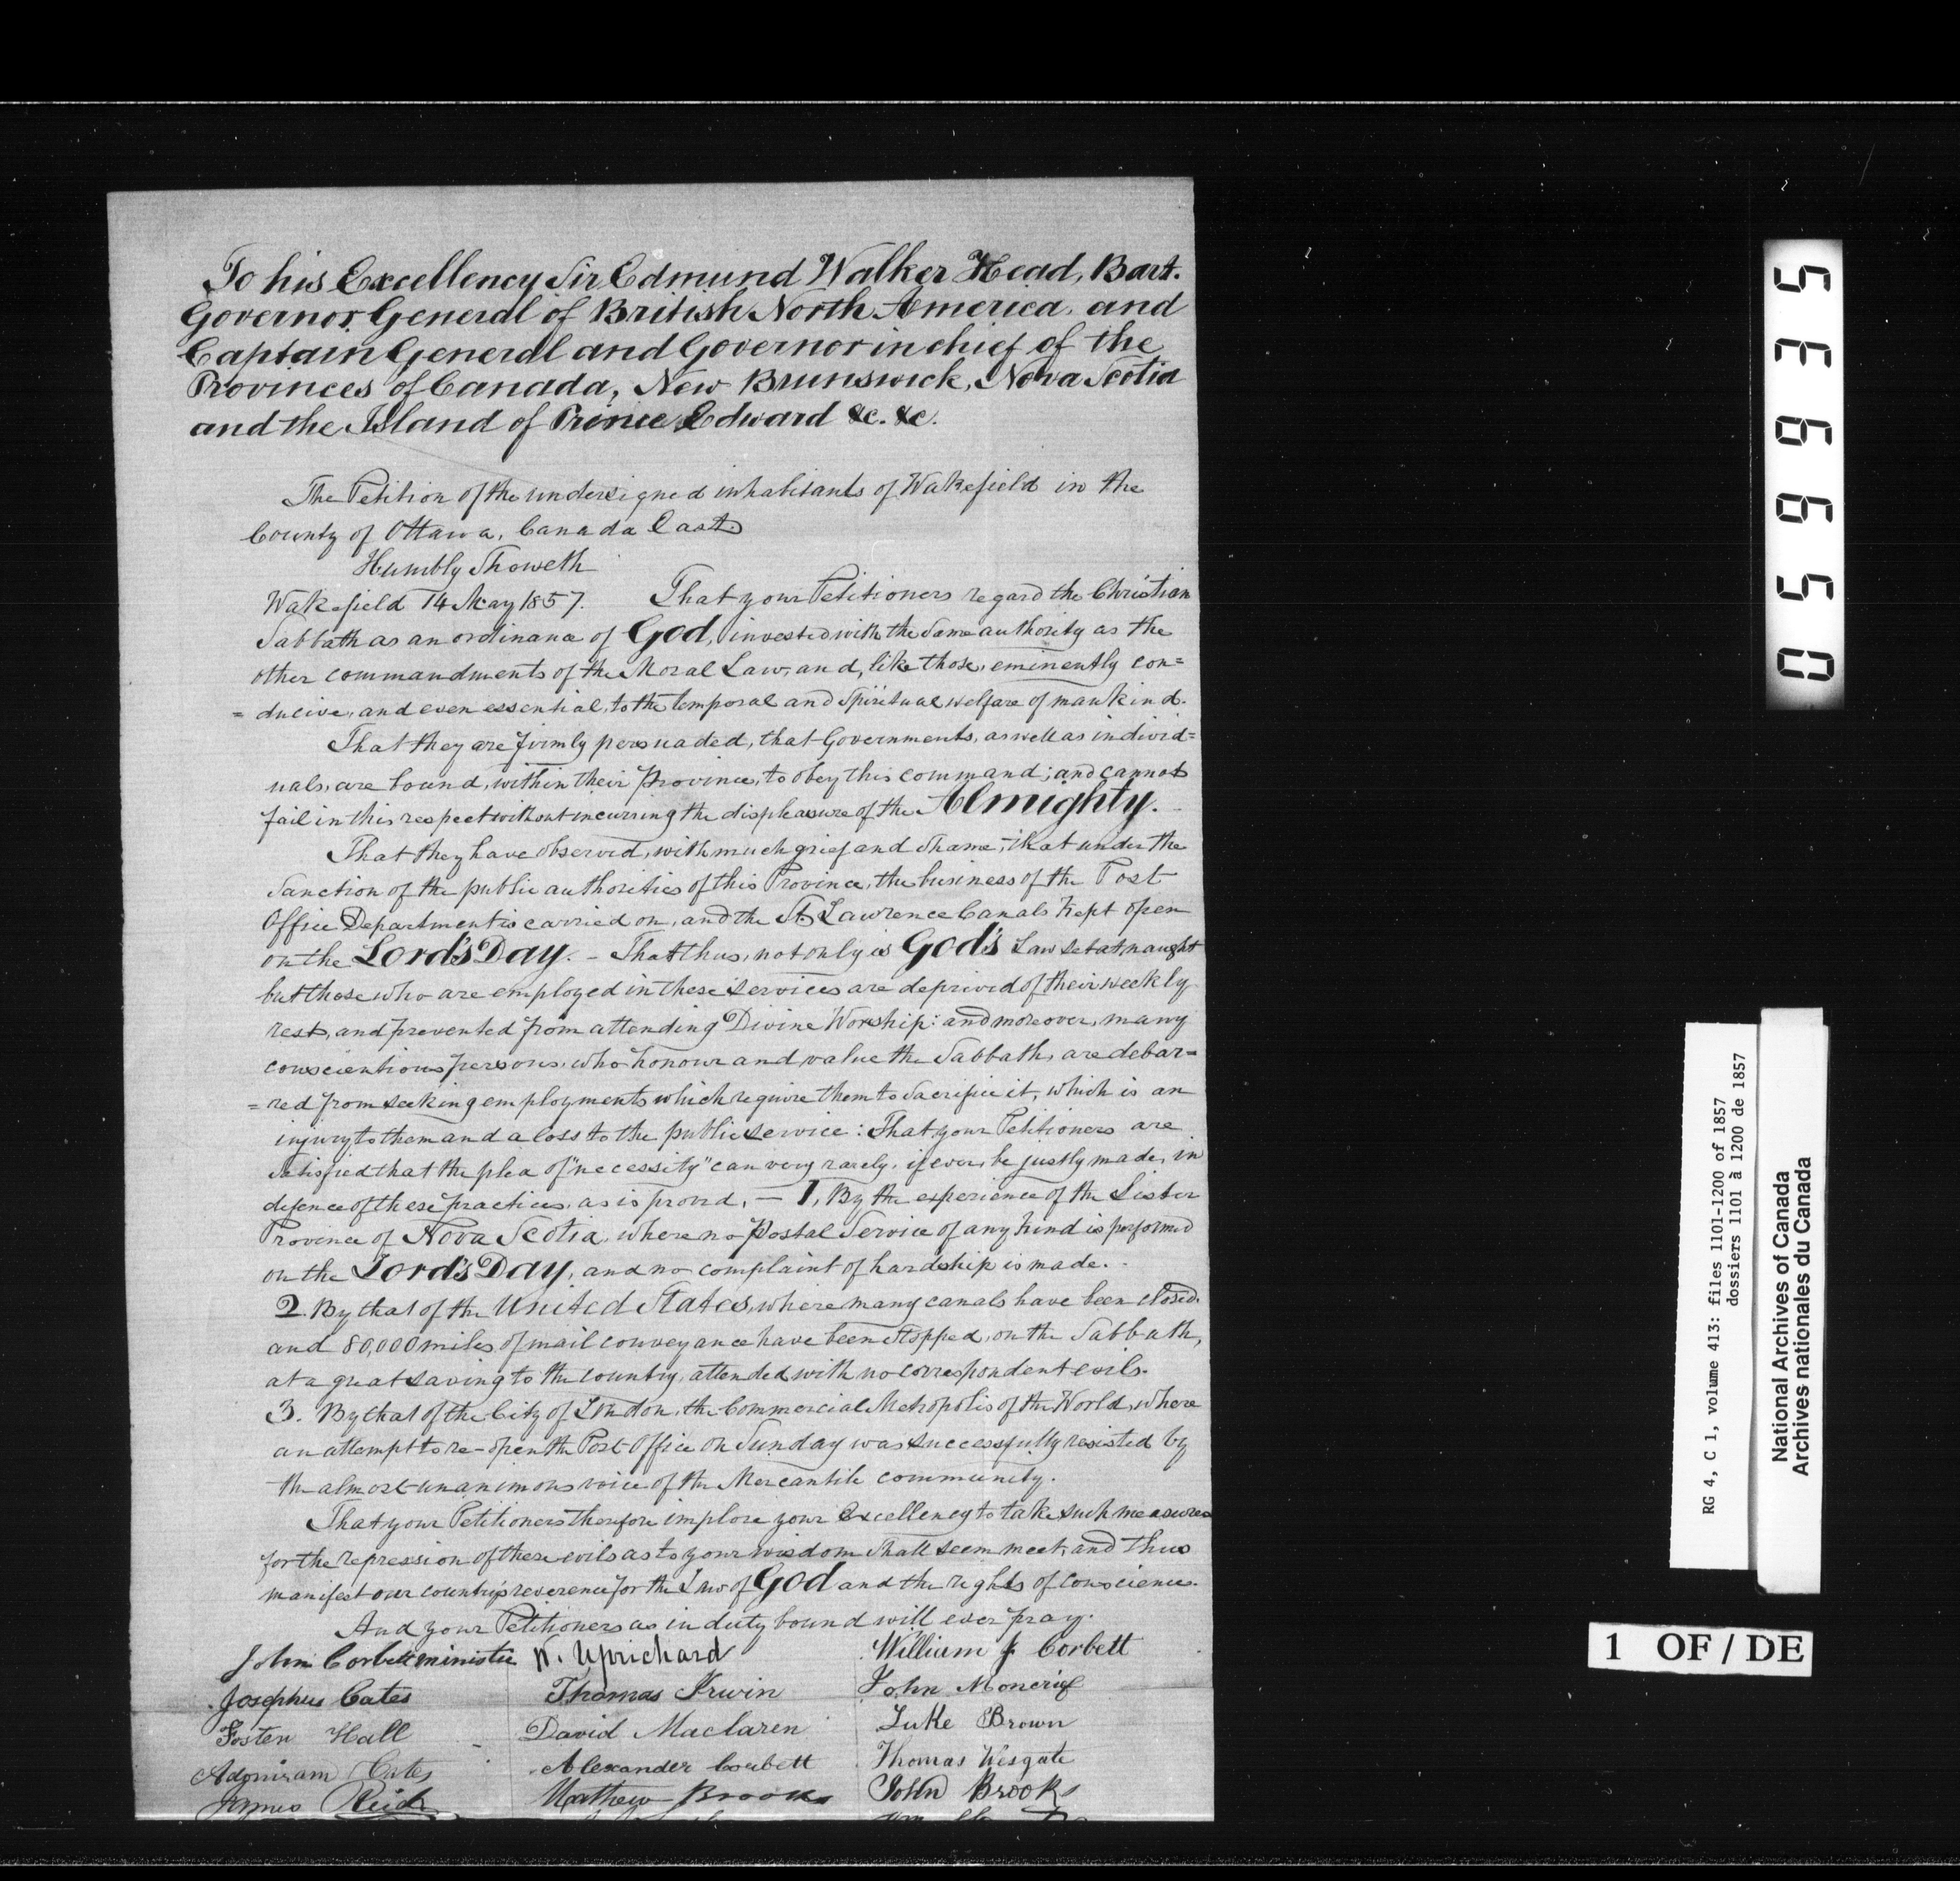 To his Excellency Sir Edmund Walker Head, Bart.
Governor General of British North America, and
Captain General and Governor in chief of the
Provinces of Canada, New Brunswick, Nova Scotia
and the Island of Prince Edward &c. &c.
The Petition of the undersigned inhabitants of Wakefield in the
County of Ottawa, Canada East
Humbly Showeth
Wakefield 14 May 1857. That your Petitioners regard the Christian
Sabbath as an ordinance of God, invested with the same authority as the
other commandments of the Moral Law, and, like those, eminently con=
=ducive, and even essential, to the temporal and Spiritual welfare of mankind.
That they are firmly persuaded, that Governments, as well as individ=
uals, are bound, within their Province, to obey this command; and cannot
fail in this respect without incurring the displeasure of the Almighty.
That they have observed, with much grief and shame, that under the
Sanction of the public authorities of this Province, the business of the Post
Office Department is carried on, and the St. Lawrence Canals kept open
on the Lord's Day. - That thus, not only is God's Law set at naught
but those who are employed in these services are deprived of their weekly
rest, and prevented from attending Divine Worship: and moreover, many
conscientious persons, who honour and value the Sabbath, are debar=
=red from seeking employments which require them to sacrifice it, which is an
injury to them and a loss to the public service: That your Petitioners are
satisfied that the plea of "necessity" can very rarely, if ever, be justly made, in
defence of these practices, as is proved, — 1, By the experience of the Sister
Province of Nova Scotia, where no Postal Service of any kind is performed
on the Lord's Day, and no complaint of hardship is made.
2. By that of the United States, where many canals have been closed,
and 80,000 miles of mail conveyance have been stopped, on the Sabbath,
at a great saving to the country, attended with no correspondent evils.
3. By that of the City of London, the Commercial Metropolis of the World, where
an attempt to re-open the Post Office on Sunday was successfully resisted by
the almost unanimous voice of the Mercantile community.
That your Petitioners therefore implore your Excellency to take such measures
for the repression of these evils as to your wisdom shall seem meet, and thus
manifest our country's reverence for the Law of God and the rights of conscience.
And your Petitioners as in duty bound will ever pray.
John Corbett minister W. Uprichard William J Corbett
Josephus Cates Thomas Irwin John Moncrief
Foster Hall David Maclaren Luke Brown
Adoniram Cates Alexander Corbett Thomas Wesgate
James Reid Mathew Brooks John Brooks
056635
RG 4, C 1, volume 413: files 1101-1200 of 1857
dossiers 1101 à 1200 de 1857
National Archives of Canada
Archives nationales du Canada
1 OF / DE